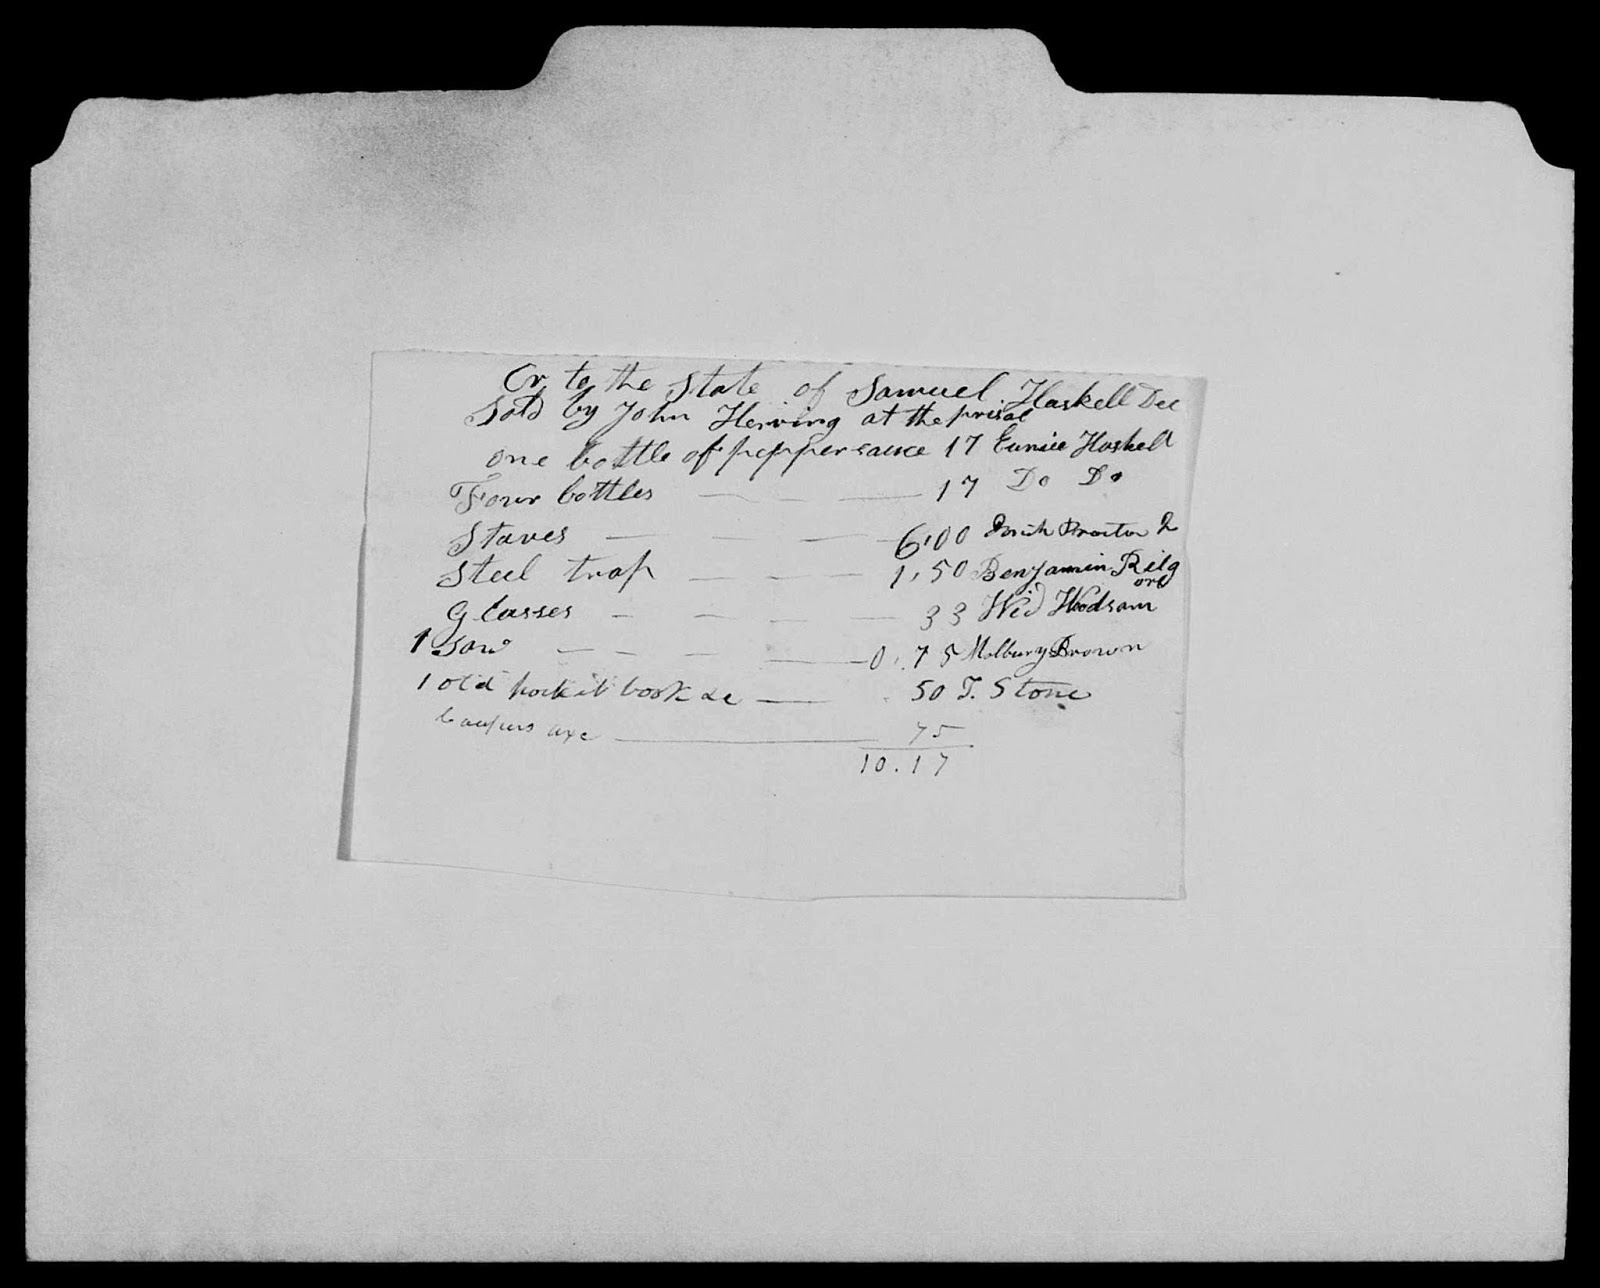 Cr to the State of Samuel Haskell Dec
Sold by John Herring at the prisal
one bottle of peppersauce 17 Eunice Haskell
Four bottles 17 Do Do
Staves 6,00
Steel trap 1,50 Benjamin Kilg
ore
Glasses 33 Wid Woodsom
1 Saw 0.75 Brown
1 old pockit book &c 50 T. Stone
Coupers axe 75
10.17